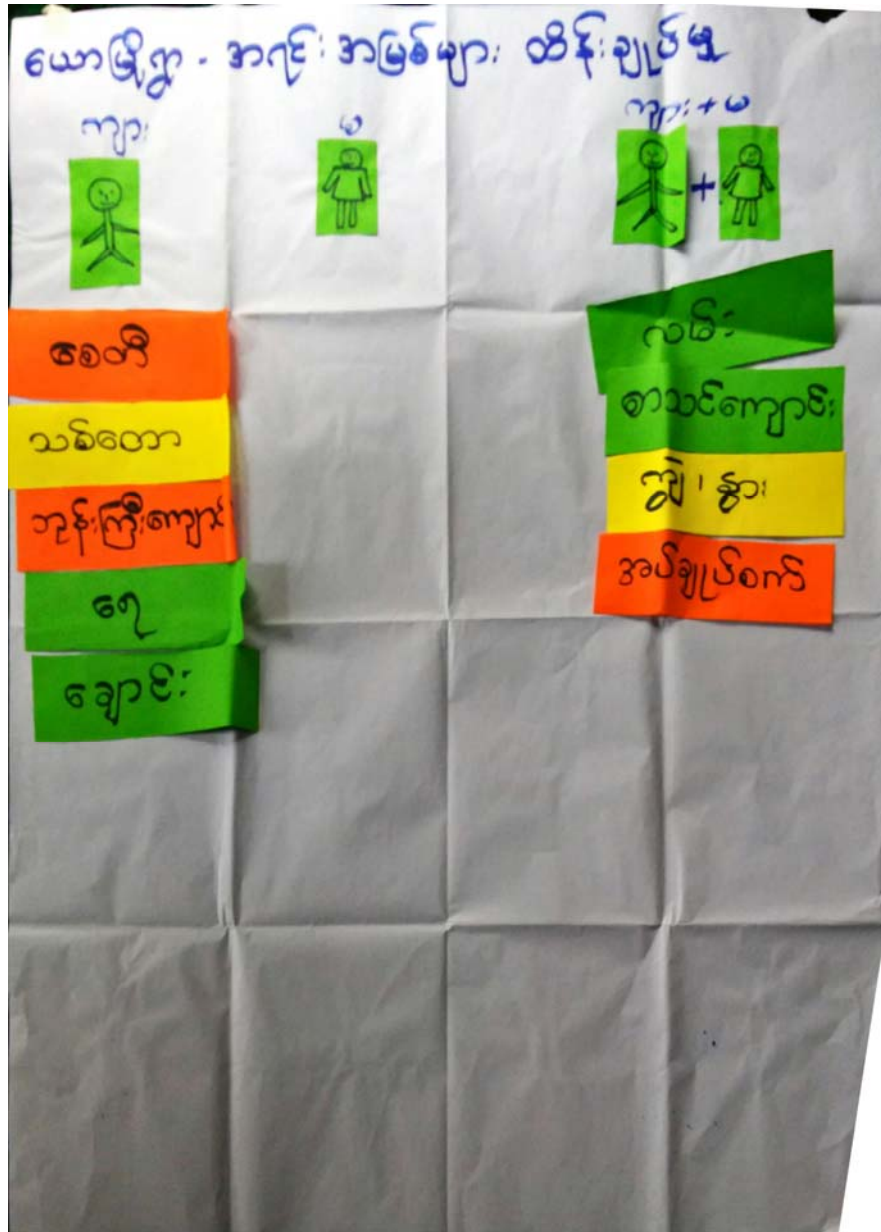 ယောမြို့ရွာ - အရင်းအမြစ်များ ထိန်းချုပ်မှု
ကျား
မ
ကျား + မ
+
စေတီ
သစ်တော
ဘုန်းကြီးကျောင်း
ရေ
ချောင်း
လမ်း
စာသင်ကျောင်း
ကျွဲ ၊ နွား
အပ်ချုပ်စက်